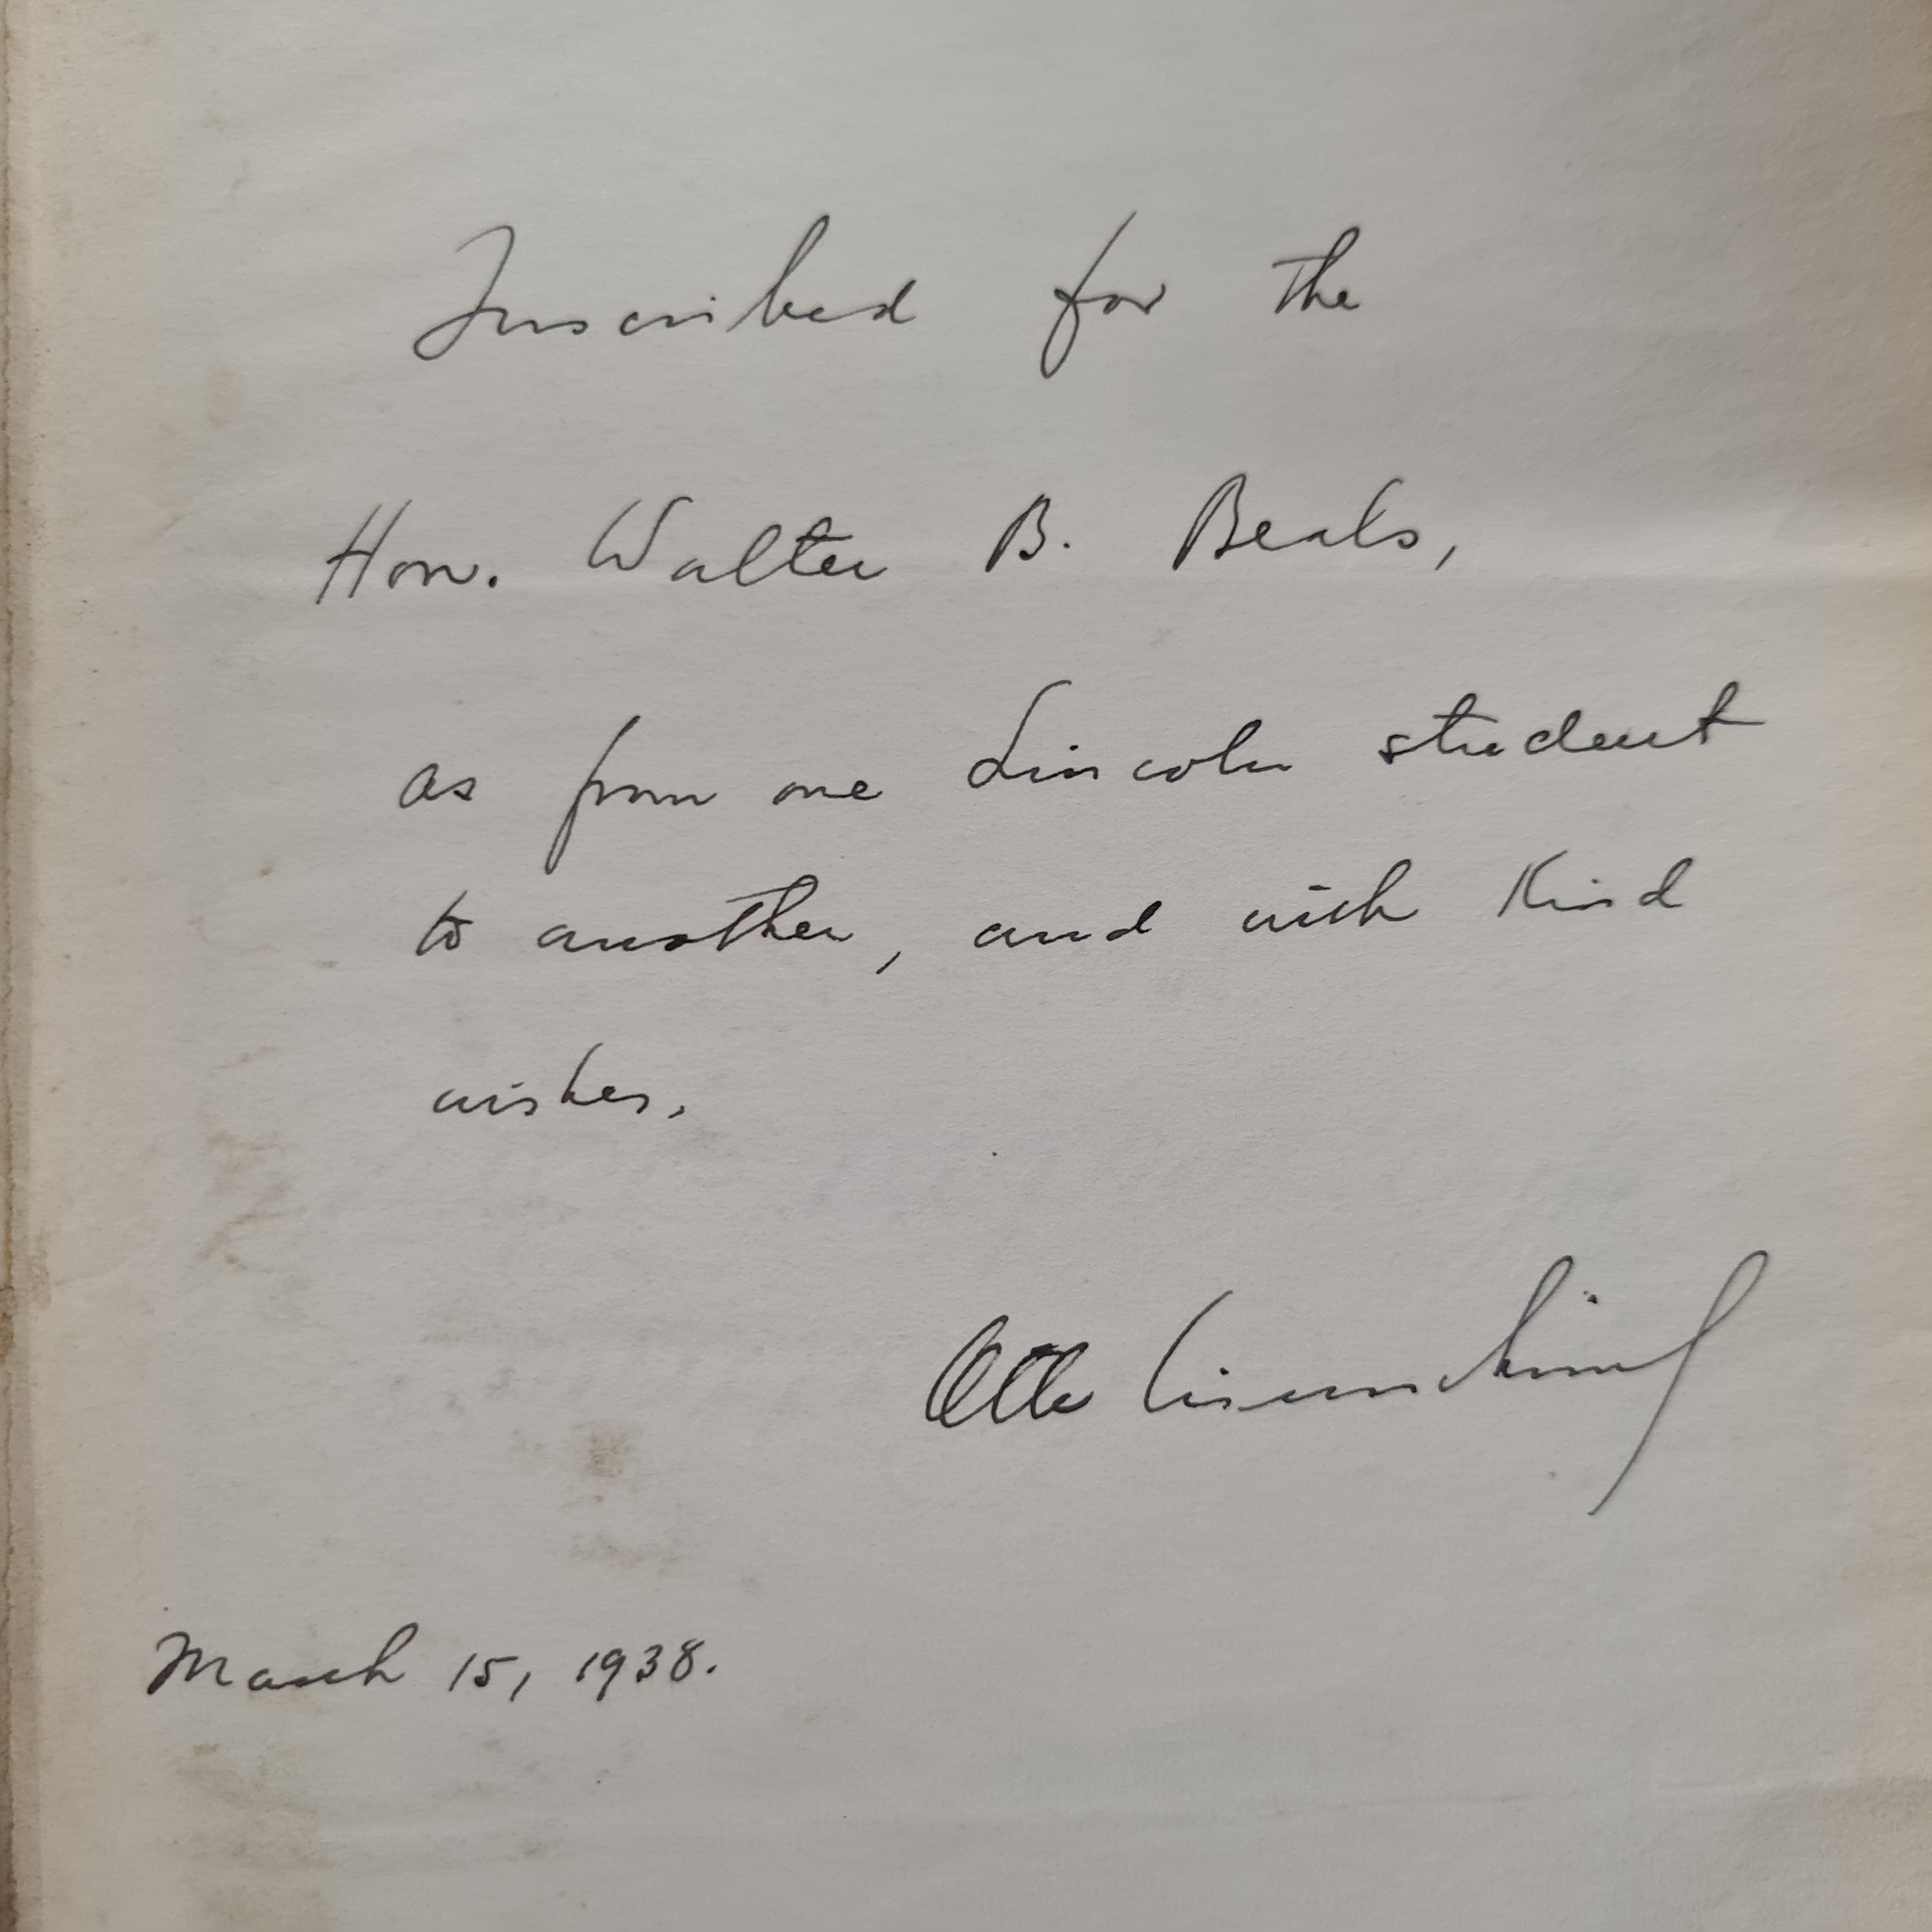 Inscribed for the
Hon. Walter B. Beals,
as from one Lincoln student
to another, and with kind
wishes.
Otto Eisenschiml
March 15, 1938.